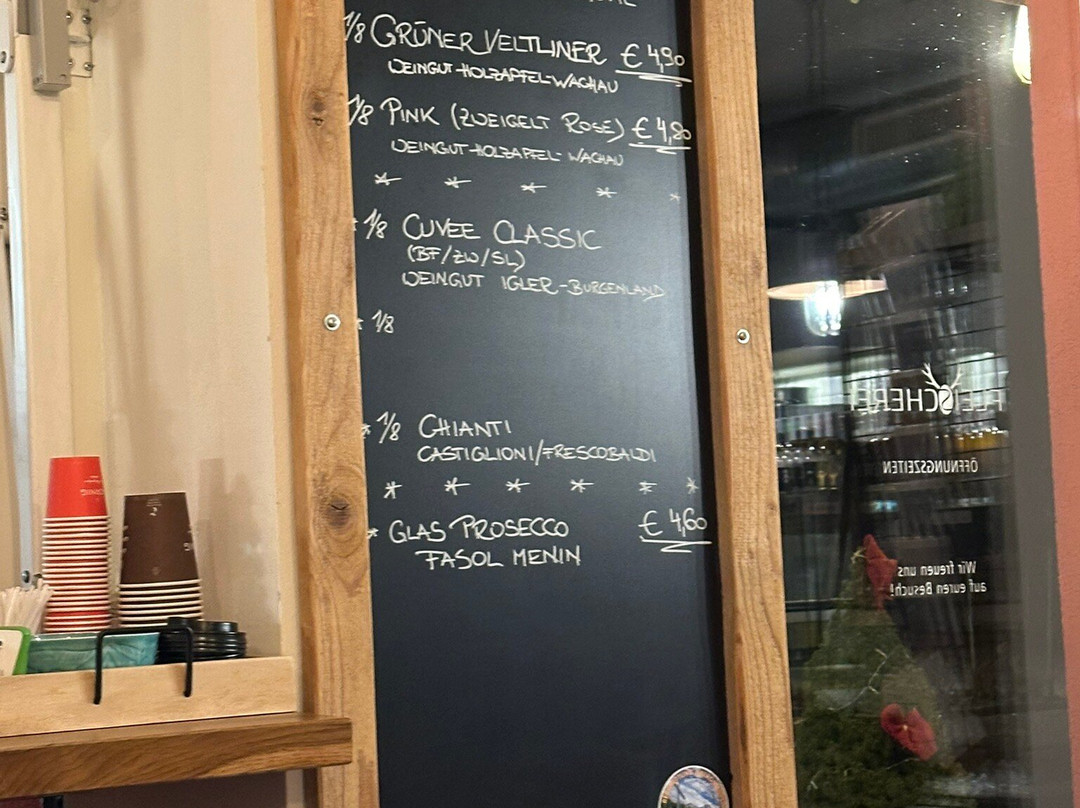 1/8 GRÜNER VELTLINER € 4,90
WEINGUT-HOLZAPFEL-WACHAU
1/8 PINK (ZWEIGELT ROSÉ) € 4,80
WEINGUT-HOLZAPFEL-WACHAU
* * * * *
* 1/8 CUVEE CLASSIC
(BF/ZW/SL)
WEINGUT IGLER-BURGENLAND
* 1/8
* 1/8 CHIANTI
CASTIGLIONI/FRESCOBALDI
* * * * * *
* GLAS PROSECCO € 4,60
FASOL MENIN
FLEISCHEREI
ÖFFNUNGSZEITEN
Wir freuen uns
auf euren Besuch!